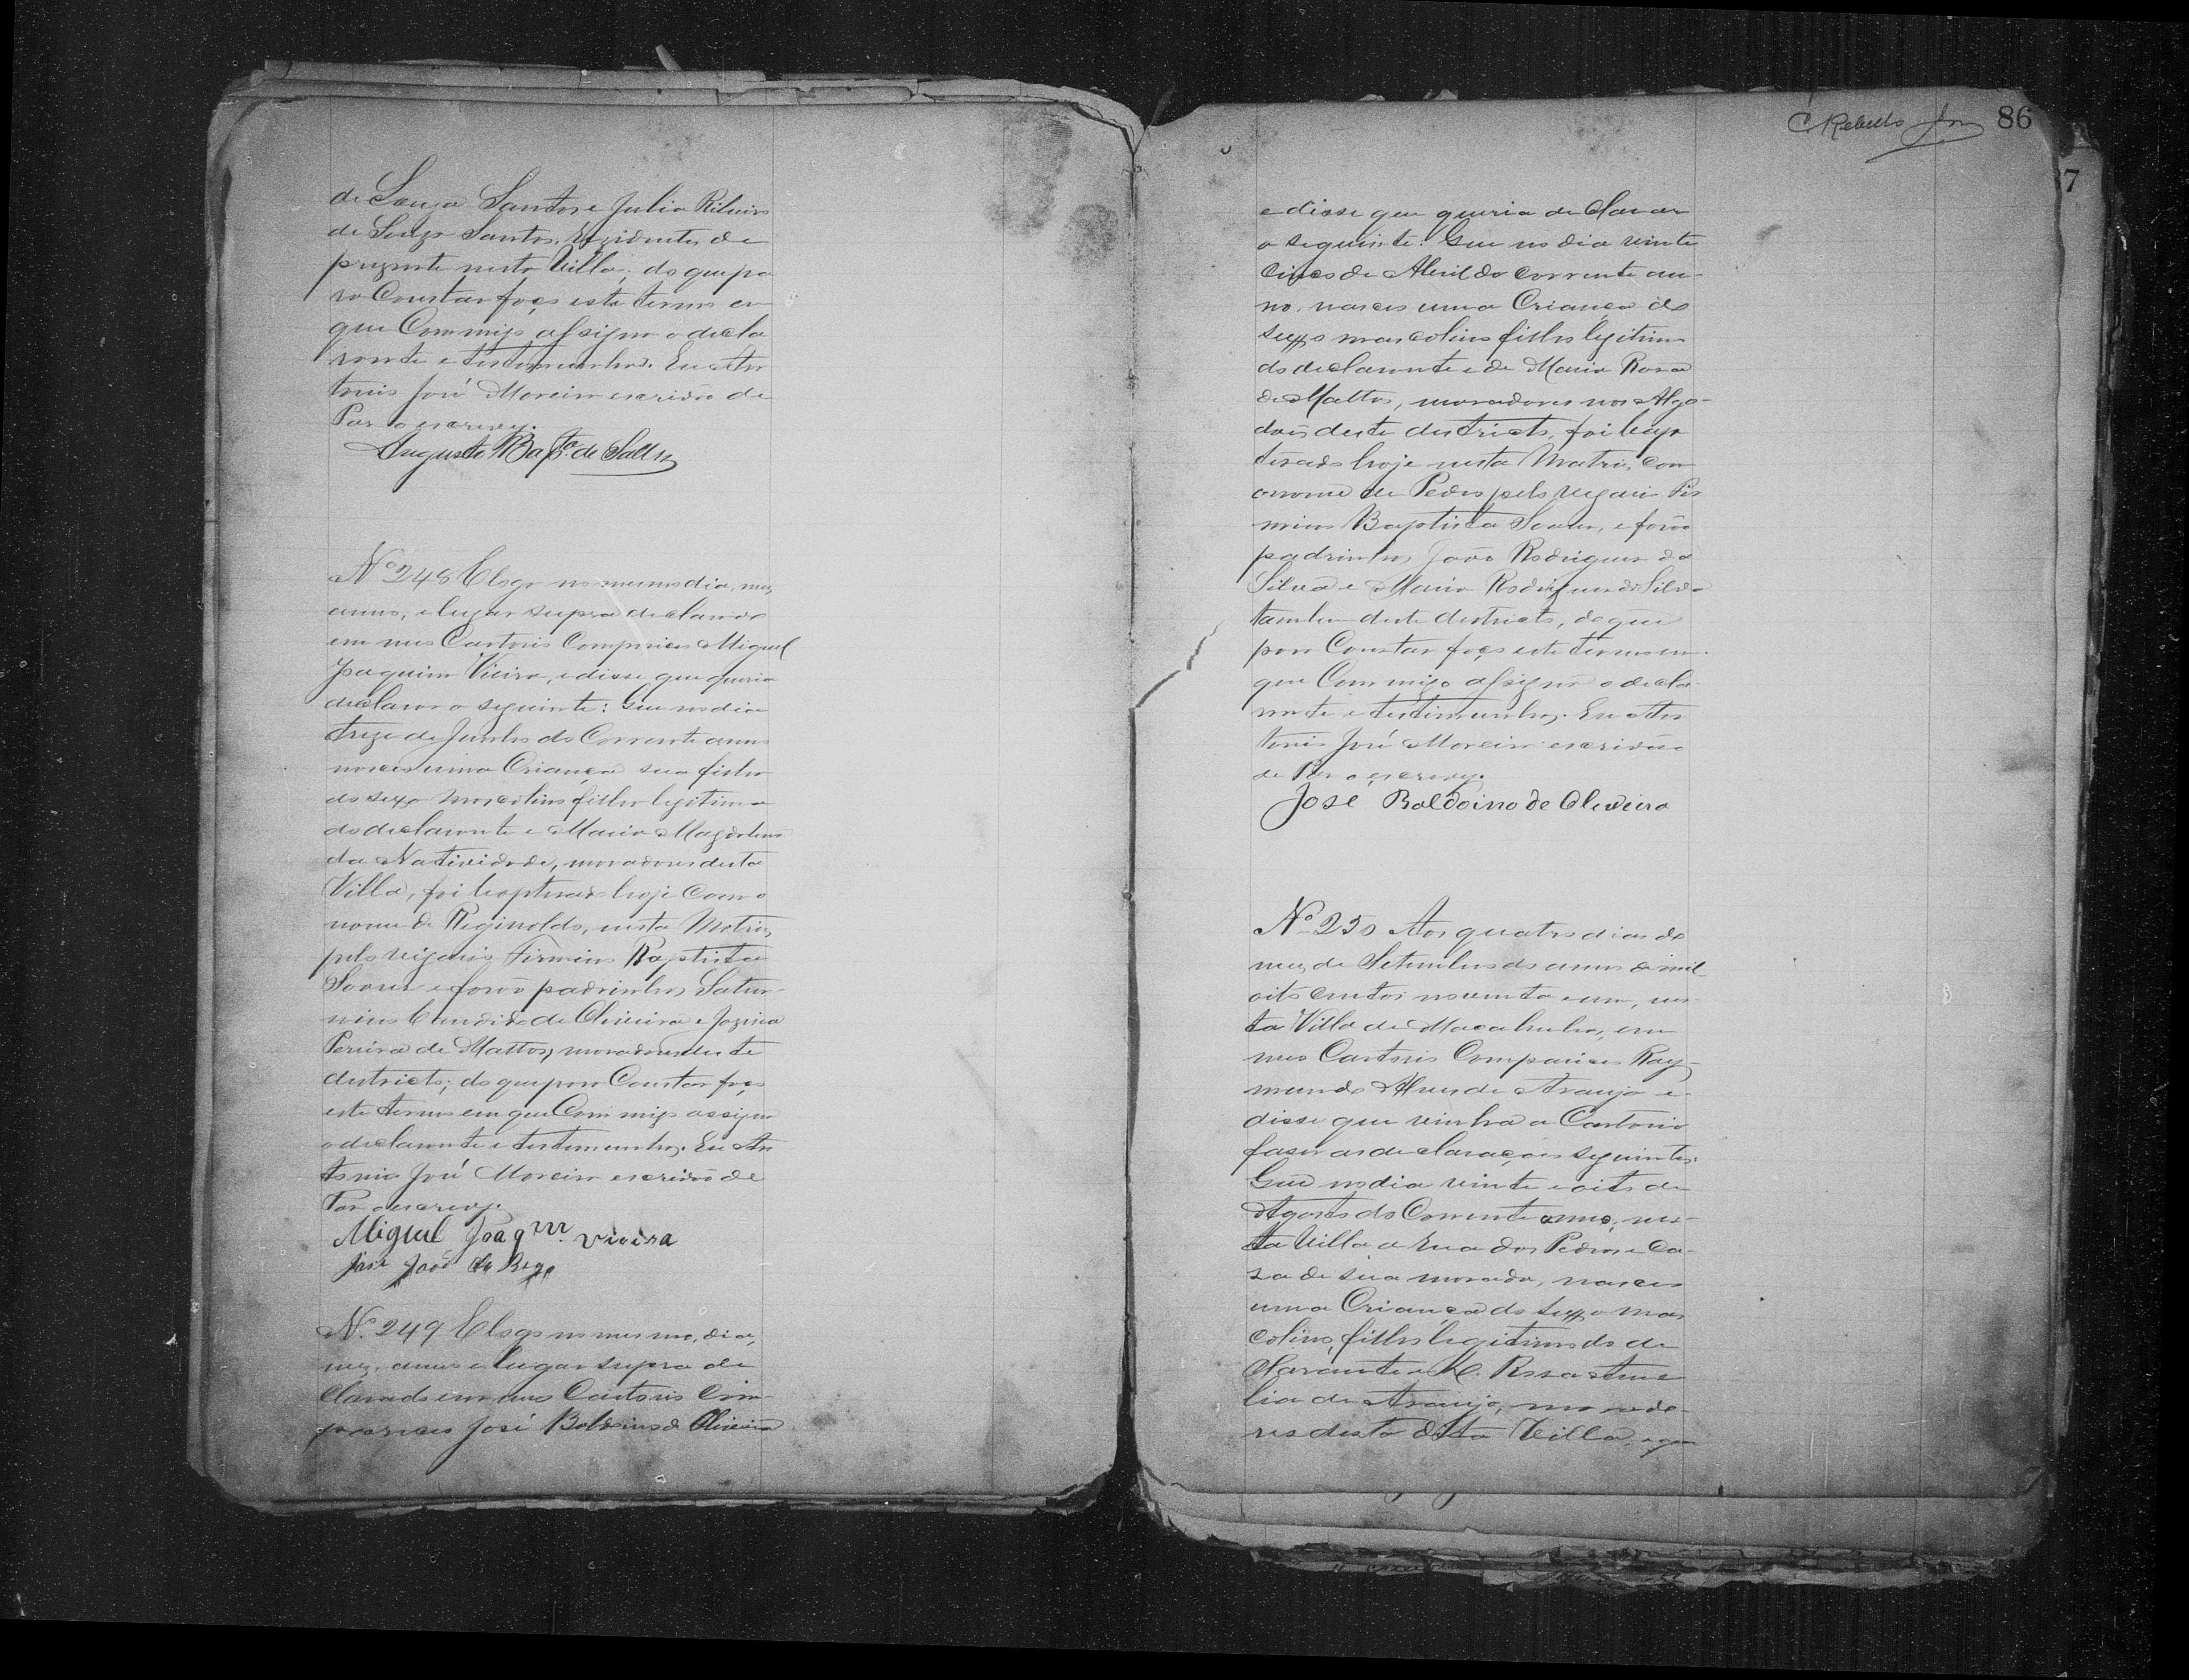 de Souza Santos e Julia Ribeiro
de Souza Santos, rezidentes de
prezente nesta Villa; do que pa
ra Constar faço este termo em
que Commigo assigna o decla
rante e testemunhas. Eu An
tonio José Moreira escrivão de
Paz o escrevy.
Augusto Bapta. de Salles
No 248 E logo no mesmo dia, mez,
anno, e lugar supra declarado
em meo Cartorio Compareceu Miguel
Joaquim Vieira, e disse que queria
declarar o seguinte: Que no dia
treze de Junho do Corrente anno
nasceu uma Criança sua filha
do sexo mascolino filho legitimo
do declarante e Maria Magdalena
da Natividade, moradores desta
Villa, foi baptisado hoje Com o
nome de Reginoldo, nesta Matriz,
pelo vigario Firmino Baptista
Soares e forão padrinhos Satur-
nino Candido de Oliveira e Jozina
Pereira de Mattos, moradores deste
districto; do que para Constar faço
este termo em que Commigo assigna
o declarante e testemunhas. Eu An
tonio José Moreira escrivão de
Paz o escrevy.
Miguel Joaqm. Vieira
José João do Rego
No. 249 E logo no mesmo, dia,
mez, anno e lugar supra de
clarado em meo Cartorio Com-
pareceu José Baldoino de Oliveira
C. Rebello 86
7
e disse que queria declarar
o seguinte: Que no dia vinte
Cinco de Abril do corrente an-
no, nasceu uma Criança do
sexo mascolino filho legitimo
do declarante e de Maria Rosa
de Mattos, moradores nos Algo-
dões deste districto, foi bap
tisado hoje nesta Matriz, com
o nome de Pedro pelo vigario Fir
mino Baptista Soares, e forão
padrinhos João Rodrigues da
Silva e Maria Rodrigues da Silva
tambem deste districto, do que
para Constar faço este termo em
que Commigo assigna o decla
rante e testimunhas. Eu An
tonio José Moreira escrivão
de Paz o escrevy.
José Baldoino de Oliveira
No 250 Aos quatro dias do
mez de Setembro do anno de mil
oito centos noventa e um, nes-
ta Villa de Macahubas, em
meo Cartorio Compareceu Ray-
mundo Alves de Araujo e
disse que vinha a Cartorio
faser as declarações seguintes:
Que no dia vinte e oito de
Agosto do Corrente anno, nes-
ta Villa, a Rua das Pedras e Ca-
sa de sua morada, nasceu
uma Criança do sexo mas
colino, filho legitimo do de
clarante e D. Rosa Ame
lia de Araujo, morado-
res desta dita Villa, e que